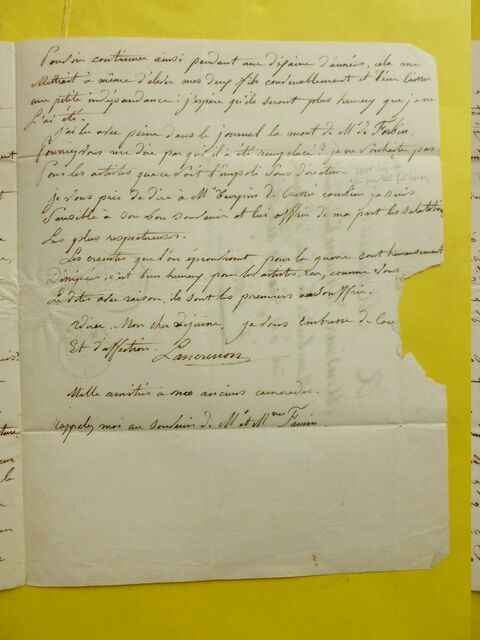 Pouvoir continuer ainsi pendant une disaine d'années, cela me
Mettrait à même d'élever mes deux fils convenablement et leur laisser
une petite indépendance : j'espère qu'ils seront plus heureux que je ne
l'ai été.
J'ai lu avec peine dans le journal la mort de Mr de Forbin.
Pourriez vous me dire par qui il a été remplacé ? je ne souhaite pas
pour les artistes que ce soit d'importe
Je vous prie de dire à Mr Turpin de Crissé combien je suis
sensible à son bon souvenir et lui offrir de ma part les salutations
les plus respectueuses.
Les craintes que l'on éprouvoient pour la guerre sont heureusement
Dissipées, c'est bien heureux pour les artistes. Car, comme vous
Le dites avec raison, ils sont les premiers a en souffrir.
adieu, Mon cher Dejuinne. je vous embrasse de
Et d'affection. Lancrenon
Mille amitiés à nos anciens camarades.
rappelez moi au souvenir de Mr et Mme